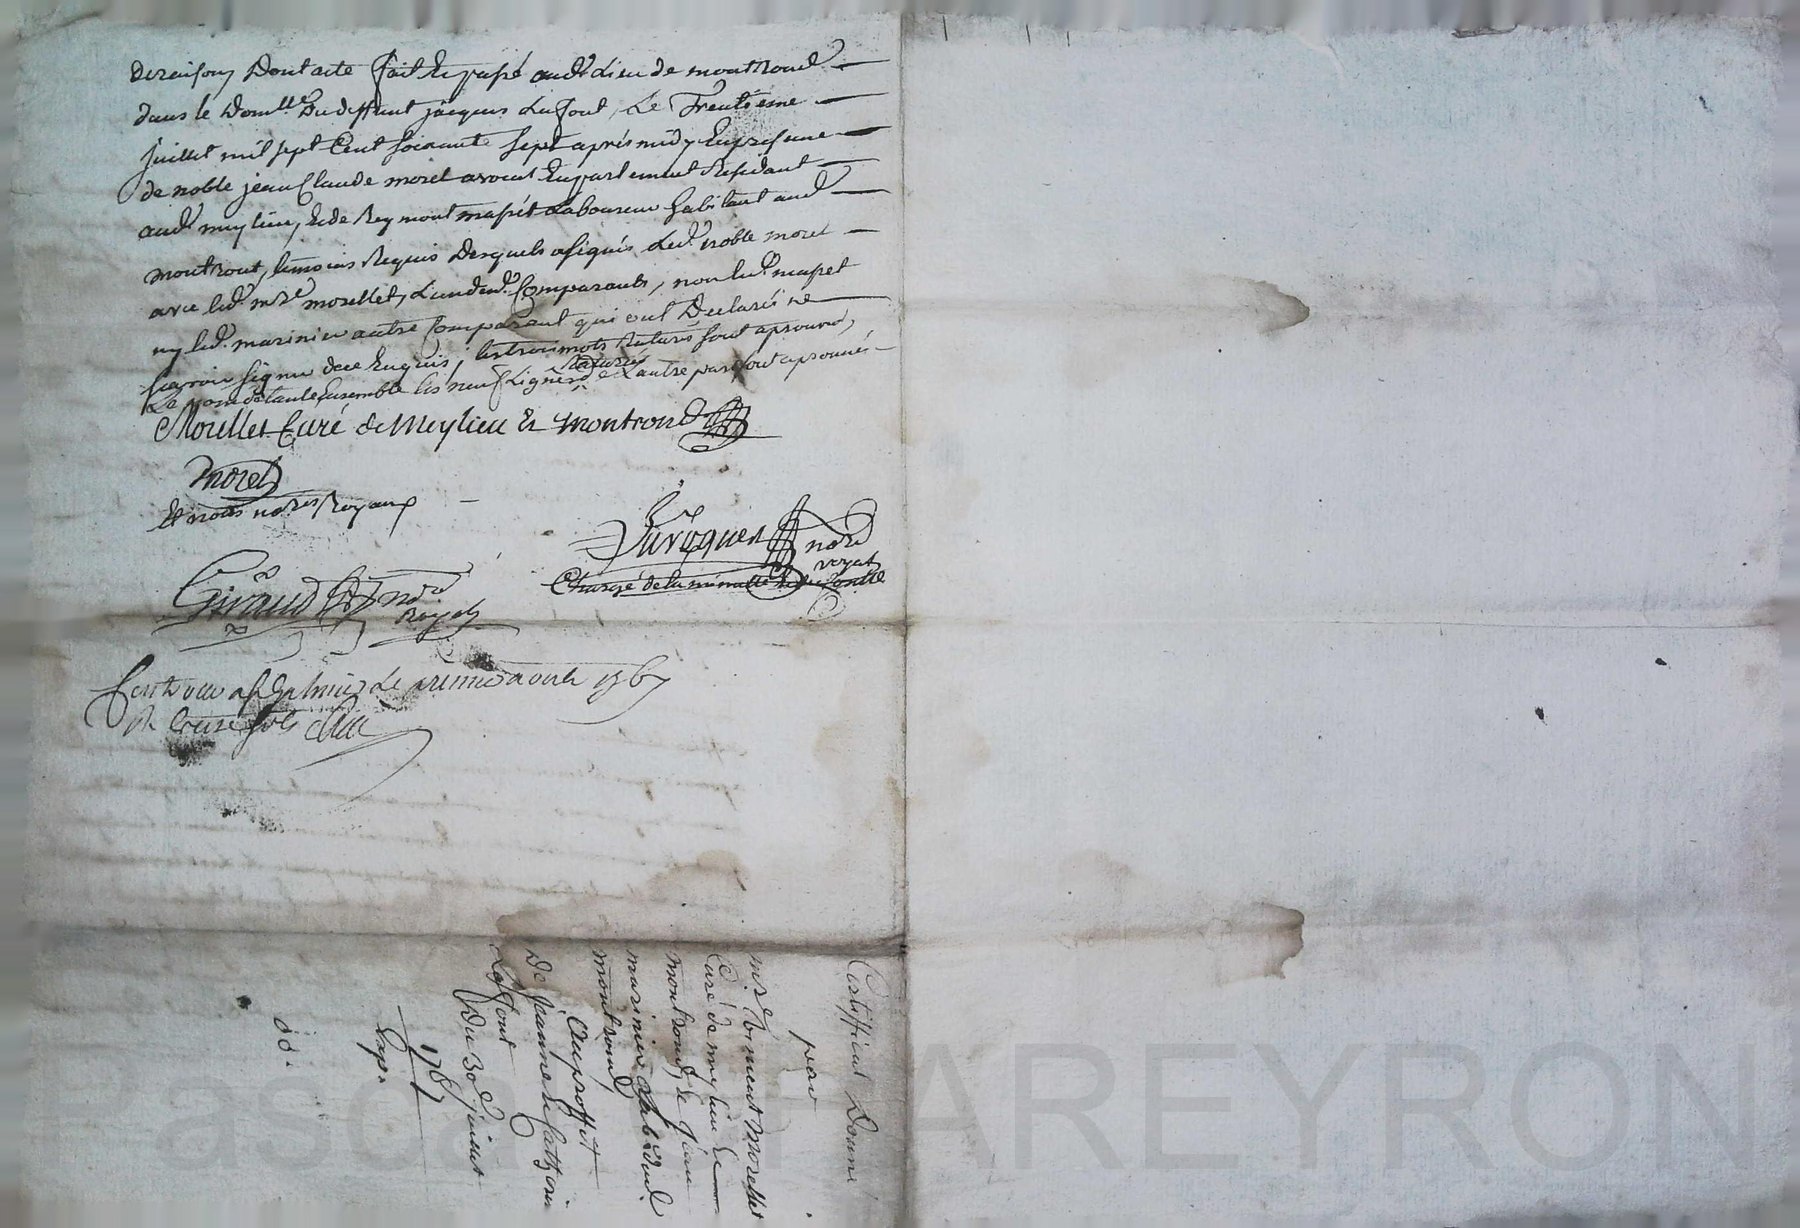 de raison, Dont acte fait et passé aud.t Lieu de montrond
dans le Dom.lle Du deffunt jacques Lafont, Le Trentieme
juillet mil sept Cent soixante sept après midy En presence
de noble jean Claude morel avocat En parlement Residant
aud.t meylieu, Et de Reymont mapet Laboureur habitant aud.t
montront, temoins Requis Desquels a signés Led.t noble morel
avec led.t m.re morellet, L'un des d. Comparants, non led.t mapet
ny led.t marinier autre Comparant qui ont Declarés ne
sçavoir signer de ce Enquis, les trois mots Raturés sont aprouvés,
raturés
Ensemble les neuf Lignes de L'autre part sont aprouvés
Morellet Curé de Meylieu et montrond
morel
Et nous no.res Royaux
Duroquer no.re
royal
Chargé de la minutte
Giraud no.re
Royal
Controlle a St Galmier le premier aoust 1767
Rt treize sols
Certifficat Donné
par
m.re Clement Morellet
Curé de meylieu Et
montrond, Et Jean
marinier hab. aud.
montrond
Au proffit
De Jeanne Et Catherine
Laffont
Du 30.e juillet
1767
Exp.
Pascal CHAREYRON